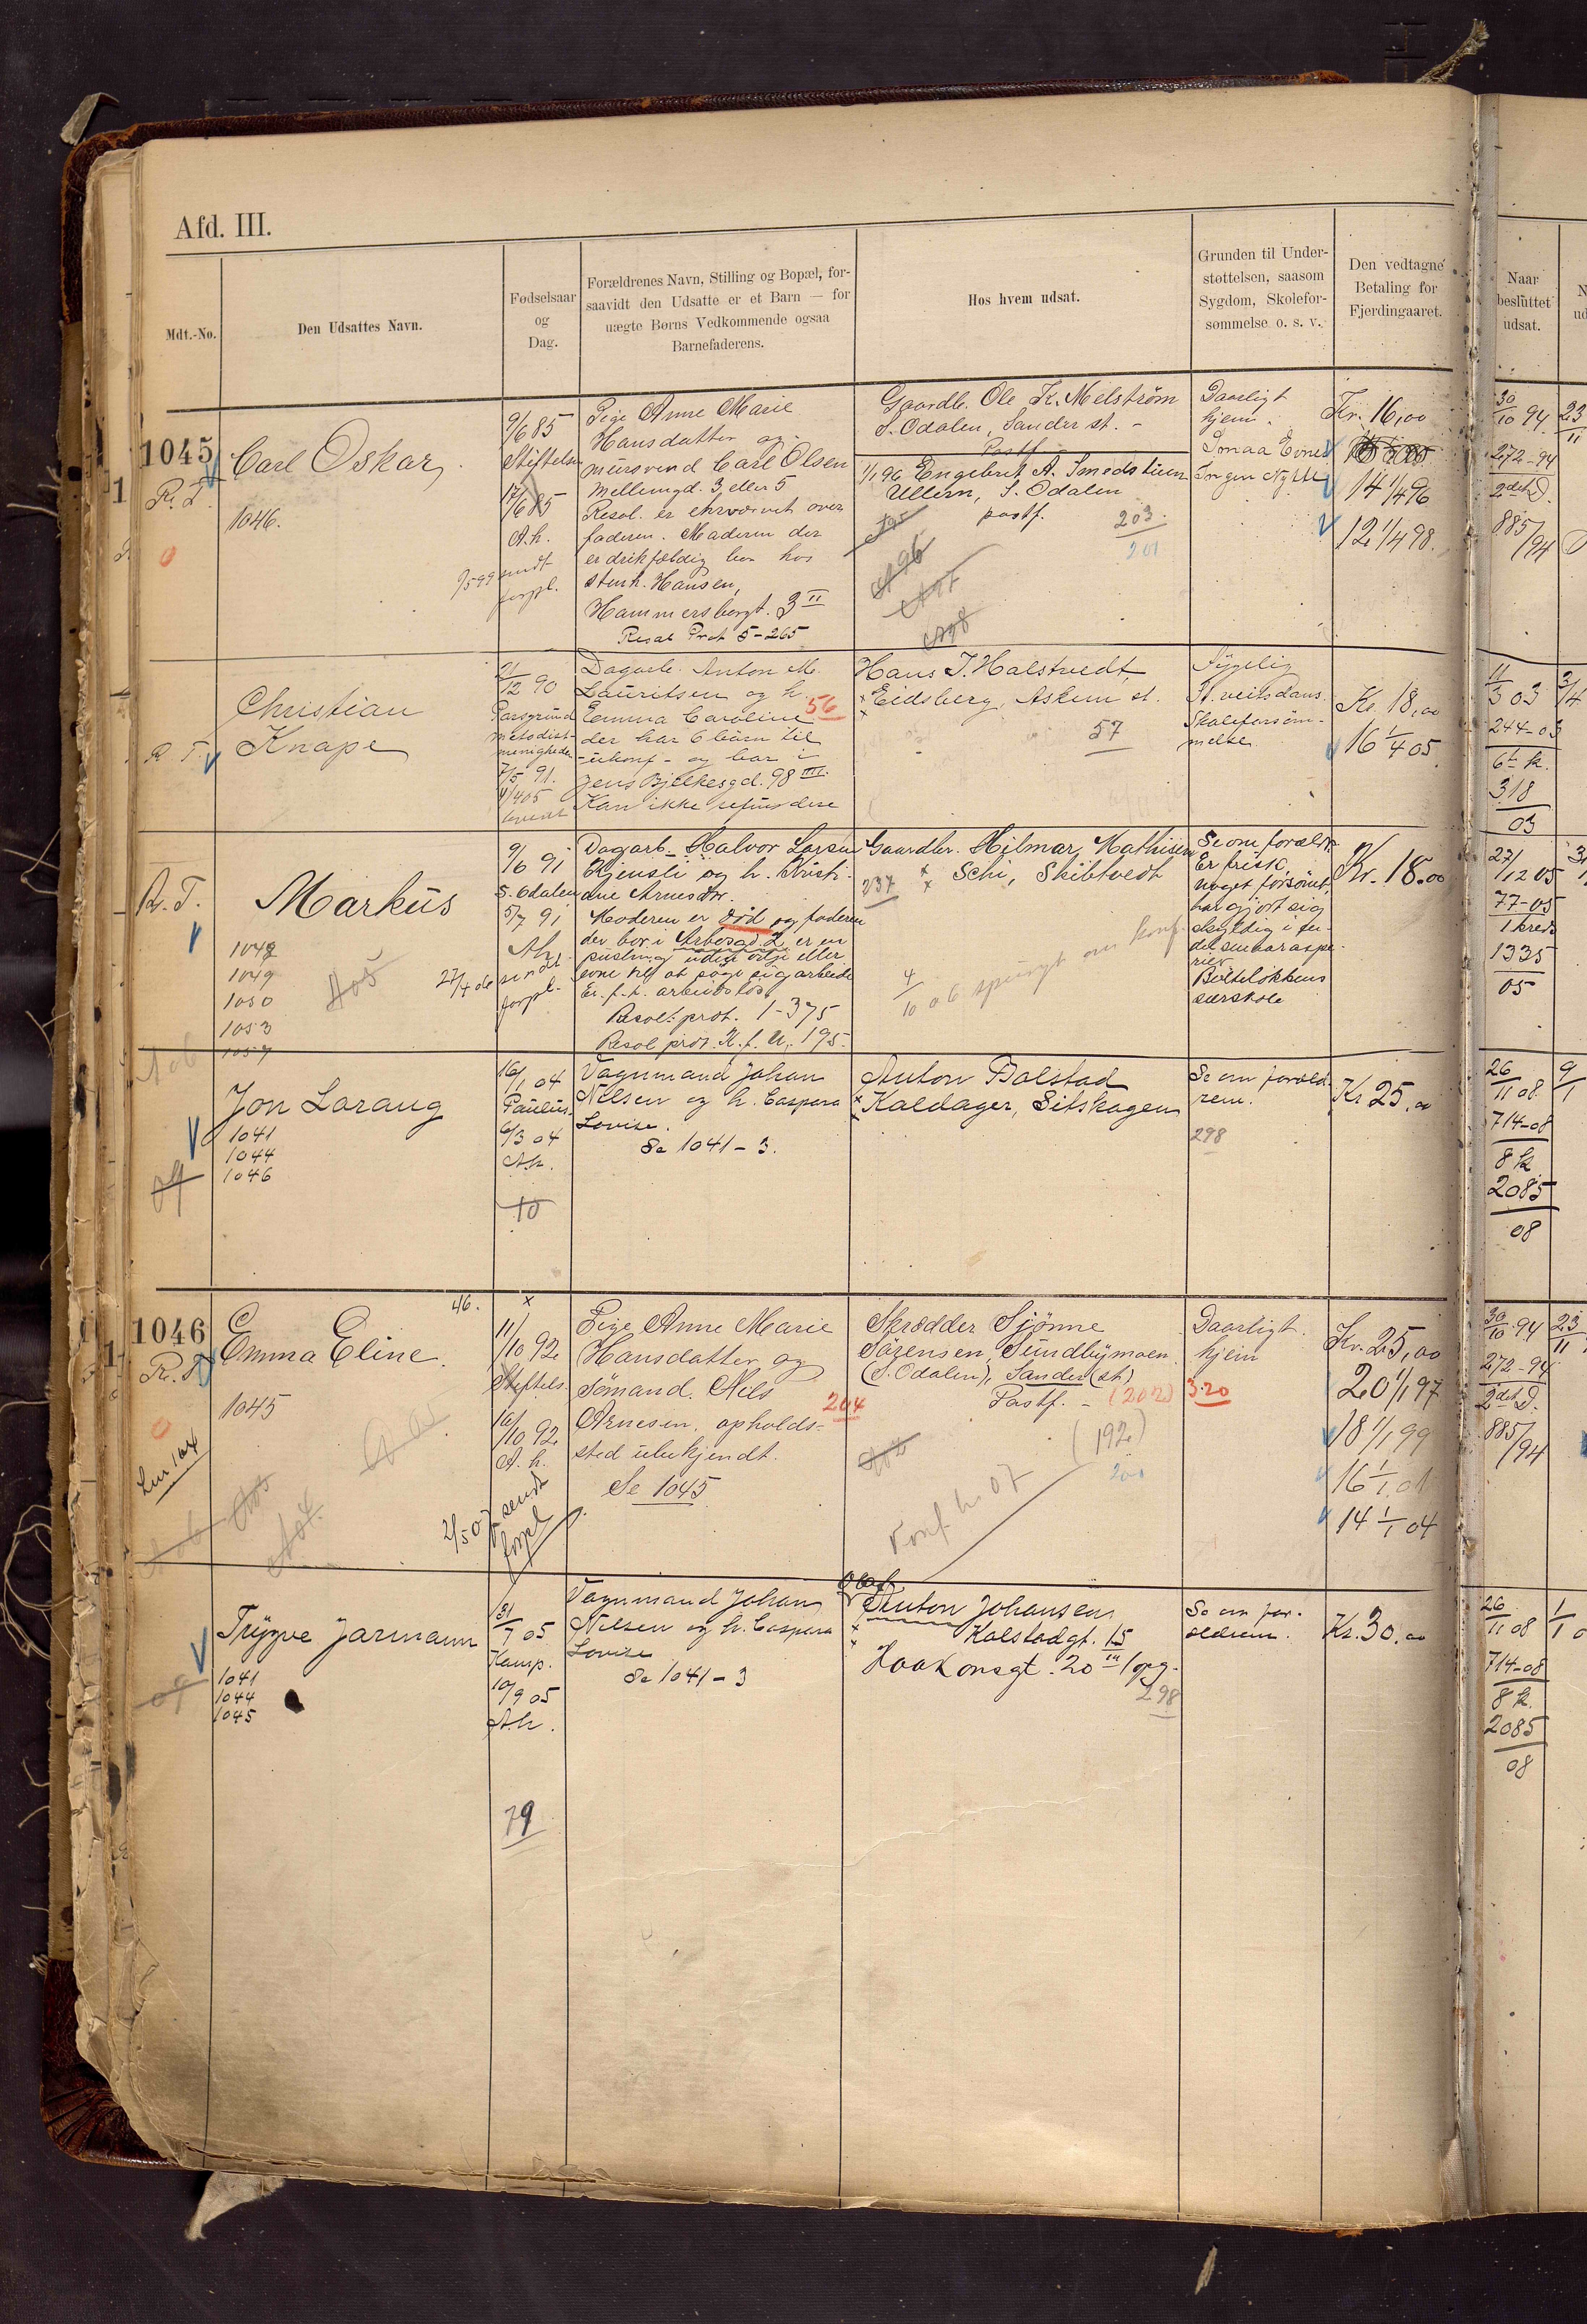 Afd. III.
Mdt.-No.
Den Udsattes Navn.
Fødselsaar
og
Dag.
Forældrenes Navn, Stilling og Bopæl, for-
saavidt den Udsatte er et Barn — for
uægte Børns Vedkommende ogsaa
Barnefaderens.
Hos hvem udsat.
Grunden til Under-
støttelsen, saasom
Sygdom, Skolefor-
sømmelse o. s. v.
Den vedtagne
Betaling for
Fjerdingaaret.
Naar
besluttet
udsat.
1045
R. T.
0
Carl Oskar
1046.
9/6 85
Stiftelsen
17/6 85
A.h.
9/5 99 sendt
forpl.
Pige Anne Marie
Hansdatter og
mursvend Carl Olsen
Mellemgd. 3 eller 5
Resol. er ehrvervet over
faderen. Moderen der
er drikfældig bor hos
stenh. Hansen,
Hammersborgt. 3 II
Resol Prot 5-265
Gaardb. Ole K. Melstrøm
S. Odalen, Sander st. -
Postf.
1/1 96 Engebret A. Smedstuen
Ullern, S. Odalen
postf.
203.
201
Daarligt
hjem.
Smaa Evner
Ingen Nytte
Kr. 16,00
14 1/4 96
12 1/4 98.
30/10 94
272-94
2det D.
885/94
23/11
R. T.
Christian
Knape
9/12 90
metodist-
menigheden
7/5 91.
Dagarb. Anton M.
Lauritsen og h.
Emma Caroline 56
der har 6 børn til
ukonf- og bor i
Jens Bjelkesgd. 98 III.
Kan ikke refundere
Hans J. Halstvedt,
Eidsberg, Askim st.
57
Sygelig
St. veitsdans.
Skoleforsøm-
melse
Kr. 18,00
16 1/4 05.
11/3 03
244-03
6te k.
318
03
R. T.
Markus
1049
1050
1053
1057
9/6 91
S. Odalen
5/7 91
Ah
27/4 06 sendt
forpl.
Dagarb. Halvor Larsen
og h. Kristi-
ane Arnesdtr.
Moderen er død og faderen
der bor i Arbosgd. 2 er en
pusling uden vilje eller
evne til at søge sig arbeide
Er f. t. arbeidsløs
Resol. prot. 1-375
Resol prot. K. f. U. 195.
Gaardbr. Hilmar Mathisen
237 Schi, Skibtvedt
4/10 06 spurgt om konf.
Se om forældr.
Er frisk,
noget forsømt,
har gjort sig
skyldig i fle-
Bølteløkkens
særskole
Kr. 18.00
27/12 05
77-05
1 kreds
1335
05
Jon Laraug
1041
1044
1046
16/1 04
Paulus.
6/3 04
Ah.
10
Vognmand Johan
Nilsen og h. Caspara
Lovise.
Se 1041-3.
Anton Bolstad
Kaldager, Sitskogen
Se om foræld-
rene.
298
Kr 25.00
26/11 08
714-08
8 k
2085
08
9/1
1046
R. T.
0
46.
Emma Eline.
1045
11/10 92
Stiftels.
16/10 92
A. h.
2/5 07 sendt
forpl.
Pige Anne Marie
Hansdatter og
sømand. Nils
Arnesen, opholds-
sted ubekjendt.
Se 1045
204
Skrædder Sjønne
Sørensen, Sundbymoen
(S. Odalen), Sander (st)
Postf. - (202)
(192)
200
Konf. h. 07
Daarligt
hjem
320
Kr. 25,00
20 1/1 97
18 1/1 99
16 1/1 01
14 1/1 04
30/10 94
272-94
2det D.
885/94
23/11
Trygve Jarmann
1041
1044
1045
31/7 05
Kamp.
10/9 05
A.h.
79
Vognmand Johan
Nilsen og h. Caspara
Lovise
Se 1041-3
Anton Johansen
Kalstadgt. 15
Haakonsgt. 20 III opg.
298
Se om for-
ældrene.
Kr. 30.00
26/11 08
714-08
8 k.
2085
08